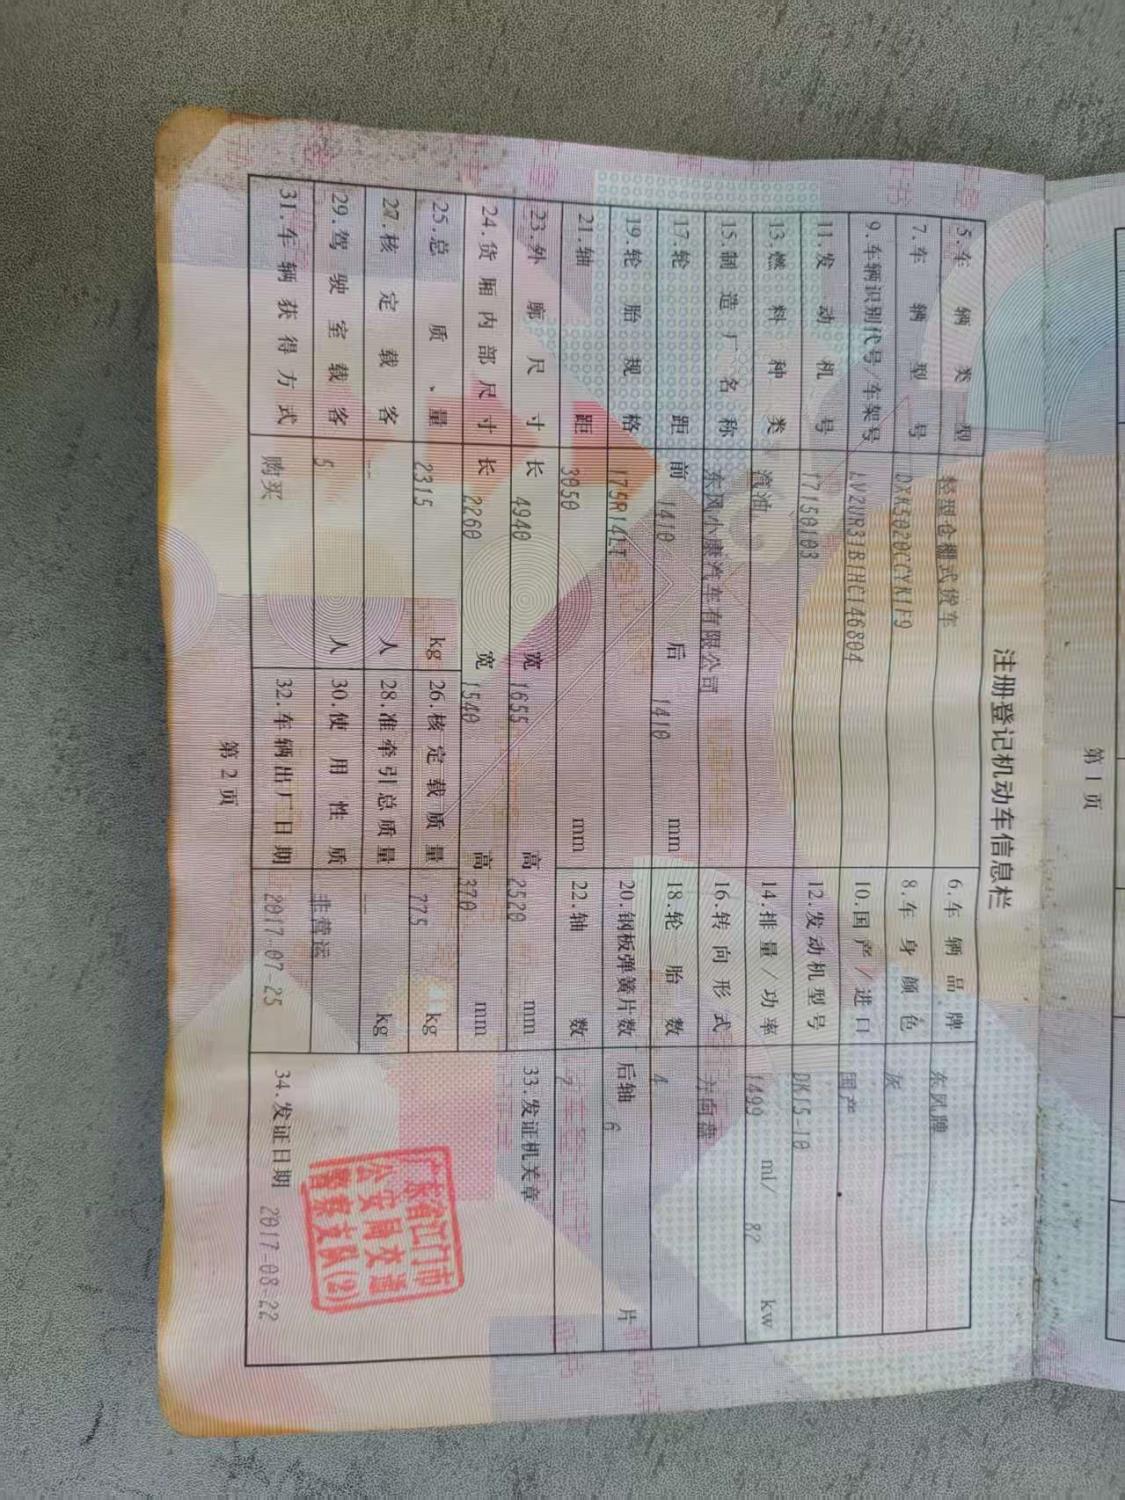 注册登记机动车信息栏
5.车辆类型 轻型仓栅式货车 6.车辆品牌 东风牌
7.车辆型号 DXK5020CCYK1F9 8.车身颜色 灰
9.车辆识别代号/车架号 LVZUR31B1HC146804 10.国产/进口 国产
11.发动机号 17150103 12.发动机型号 DK15-10
13.燃料种类 汽油 14.排量/功率 1499 ml/ 82 kw
15.制造厂名称 东风小康汽车有限公司 16.转向形式 方向盘
17.轮距 前 1410 后 1410 mm 18.轮胎数 4
19.轮胎规格 175R14LT 20.钢板弹簧片数 后轴 6 片
21.轴距 3050 mm 22.轴数 2
23.外廓尺寸 长 4940 宽 1655 高 2520 mm 33.发证机关章
24.货厢内部尺寸 长 2260 宽 1540 高 370 mm
25.总质量 2315 kg 26.核定载质量 775 kg
27.核定载客 -- 人 28.准牵引总质量 -- kg
29.驾驶室载客 5 人 30.使用性质 非营运
31.车辆获得方式 购买 32.车辆出厂日期 2017-07-25 34.发证日期 2017-08-22
广东省江门市
公安局交通
警察支队(2)
第2页
第1页